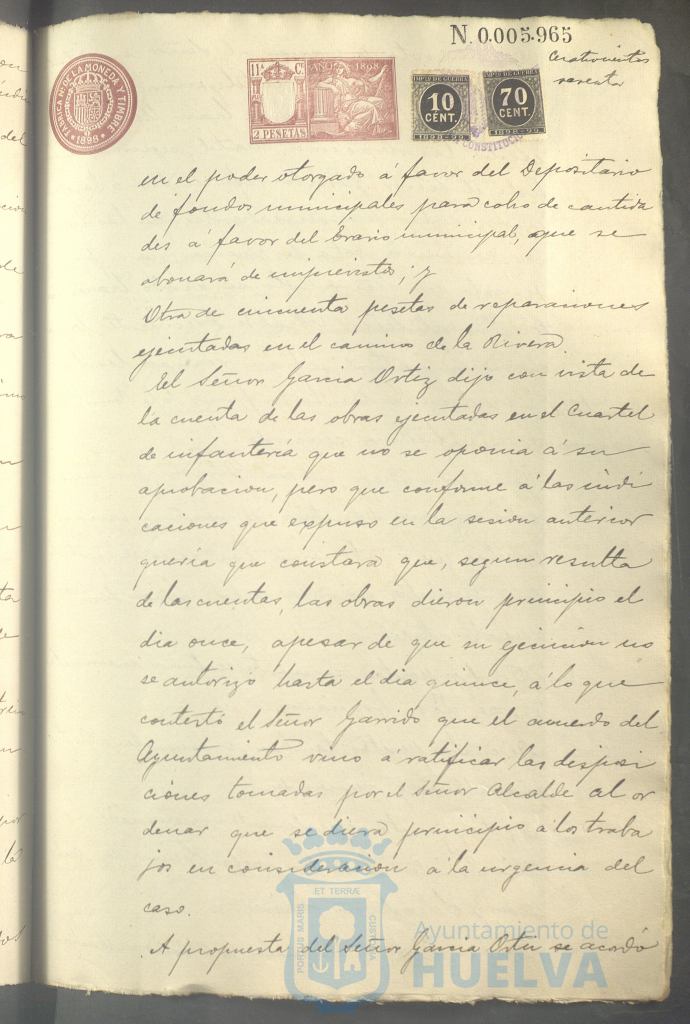 N. 0.005.965
FÁBRICA NL DE LA MONEDA Y TIMBRE
1898
11ª C.
AÑO 1898
2 PESETAS
IMPTO DE GUERRA
10
CENT.
1898-99
IMPTO DE GUERRA
70
CENT.
1898-99
CONSTITUC
en el poder otorgado á favor del Depositario
de fondos municipales para cobro de cantida
des á favor del Erario municipal, que se
abonará de imprevistos; y
Otra de cincuenta pesetas de reparaciones
ejecutadas en el camino de la Rivera.
El Señor Garcia Ortiz dijo con vista de
la cuenta de las obras ejecutadas en el Cuartel
de infantería que no se oponia á su
aprobacion, pero que conforme á las indi
caciones que expuso en la sesion anterior
quería que constara que, segun resulta
de las cuentas, las obras dieron principio el
dia once, apesar de que su ejecucion no
se autorizó hasta el dia quince, á lo que
contestó el Señor Garrido que el acuerdo del
Ayuntamiento vino á ratificar las disposi
ciones tomadas por el Señor Alcalde al or
denar que se diera principio á los traba
jos en consideracion á la urgencia del
caso.
A propuesta del Señor Garcia Ortiz se acordó
PORTUS MARIS
ET TERRÆ
CUSTODIA
Ayuntamiento de
HUELVA